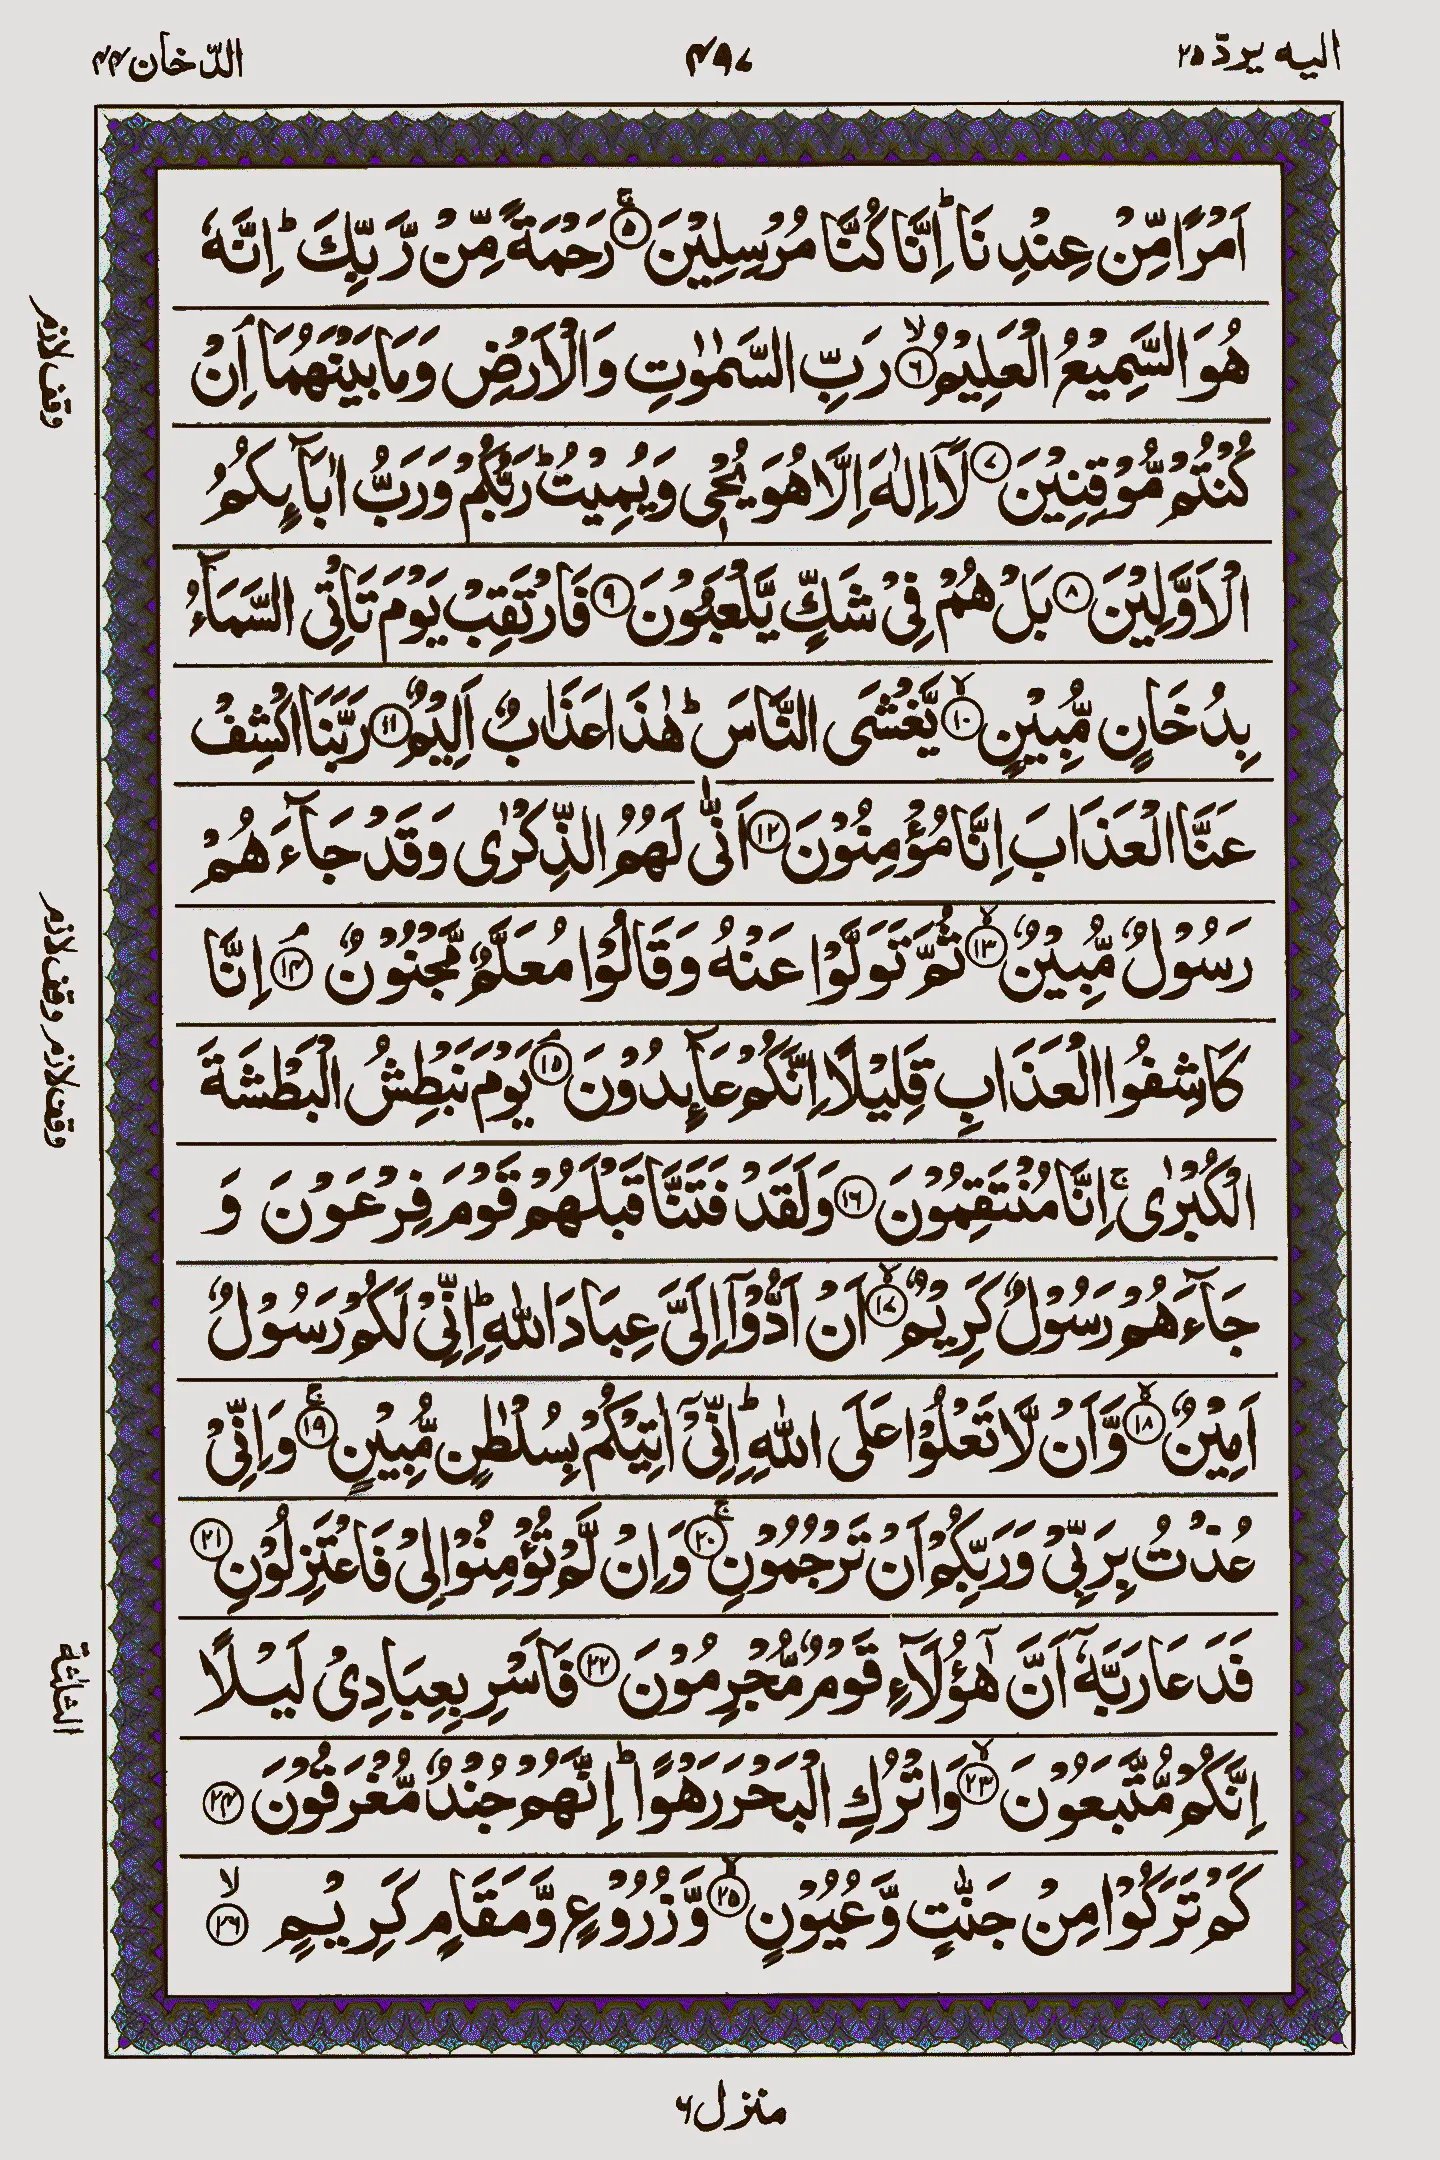 الیه یردّ ۲۵
۴۹۷
الدّخان ۴۴
اَمْرًا مِّنْ عِنْدِنَا ؕ اِنَّا كُنَّا مُرْسِلِیْنَ ۚ﴿۵﴾ رَحْمَةً مِّنْ رَّبِّكَ ؕ اِنَّهٗ
هُوَ السَّمِیْعُ الْعَلِیْمُ ۙ﴿۶﴾ رَبِّ السَّمٰوٰتِ وَ الْاَرْضِ وَ مَا بَیْنَهُمَا ۘ اِنْ
كُنْتُمْ مُّوْقِنِیْنَ ﴿۷﴾ لَاۤ اِلٰهَ اِلَّا هُوَ یُحْیٖ وَ یُمِیْتُ ؕ رَبُّكُمْ وَ رَبُّ اٰبَآىِٕكُمُ
الْاَوَّلِیْنَ ﴿۸﴾ بَلْ هُمْ فِیْ شَكٍّ یَّلْعَبُوْنَ ﴿۹﴾ فَارْتَقِبْ یَوْمَ تَاْتِی السَّمَآءُ
بِدُخَانٍ مُّبِیْنٍ ۙ﴿۱۰﴾ یَّغْشَی النَّاسَ ؕ هٰذَا عَذَابٌ اَلِیْمٌ ﴿۱۱﴾ رَبَّنَا اكْشِفْ
عَنَّا الْعَذَابَ اِنَّا مُؤْمِنُوْنَ ﴿۱۲﴾ اَنّٰی لَهُمُ الذِّكْرٰی وَ قَدْ جَآءَهُمْ
رَسُوْلٌ مُّبِیْنٌ ۙ﴿۱۳﴾ ثُمَّ تَوَلَّوْا عَنْهُ وَ قَالُوْا مُعَلَّمٌ مَّجْنُوْنٌ ۘ﴿۱۴﴾ اِنَّا
كَاشِفُوا الْعَذَابِ قَلِیْلًا اِنَّكُمْ عَآىِٕدُوْنَ ۘ﴿۱۵﴾ یَوْمَ نَبْطِشُ الْبَطْشَةَ
الْكُبْرٰی ۚ اِنَّا مُنْتَقِمُوْنَ ﴿۱۶﴾ وَ لَقَدْ فَتَنَّا قَبْلَهُمْ قَوْمَ فِرْعَوْنَ وَ
جَآءَهُمْ رَسُوْلٌ كَرِیْمٌ ۙ﴿۱۷﴾ اَنْ اَدُّوْۤا اِلَیَّ عِبَادَ اللّٰهِ ؕ اِنِّیْ لَكُمْ رَسُوْلٌ
اَمِیْنٌ ۙ﴿۱۸﴾ وَّ اَنْ لَّا تَعْلُوْا عَلَی اللّٰهِ ؕ اِنِّیْۤ اٰتِیْكُمْ بِسُلْطٰنٍ مُّبِیْنٍ ۚ﴿۱۹﴾ وَ اِنِّیْ
عُذْتُ بِرَبِّیْ وَ رَبِّكُمْ اَنْ تَرْجُمُوْنِ ۚ﴿۲۰﴾ وَ اِنْ لَّمْ تُؤْمِنُوْا لِیْ فَاعْتَزِلُوْنِ ﴿۲۱﴾
فَدَعَا رَبَّهٗۤ اَنَّ هٰۤؤُلَآءِ قَوْمٌ مُّجْرِمُوْنَ ﴿۲۲﴾ فَاَسْرِ بِعِبَادِیْ لَیْلًا
اِنَّكُمْ مُّتَّبَعُوْنَ ۙ﴿۲۳﴾ وَ اتْرُكِ الْبَحْرَ رَهْوًا ؕ اِنَّهُمْ جُنْدٌ مُّغْرَقُوْنَ ﴿۲۴﴾
كَمْ تَرَكُوْا مِنْ جَنّٰتٍ وَّ عُیُوْنٍ ۙ﴿۲۵﴾ وَّ زُرُوْعٍ وَّ مَقَامٍ كَرِیْمٍ ۙ﴿۲۶﴾
وقف لازم
وقف لازم وقف لازم
الثلثة
منزل ۶